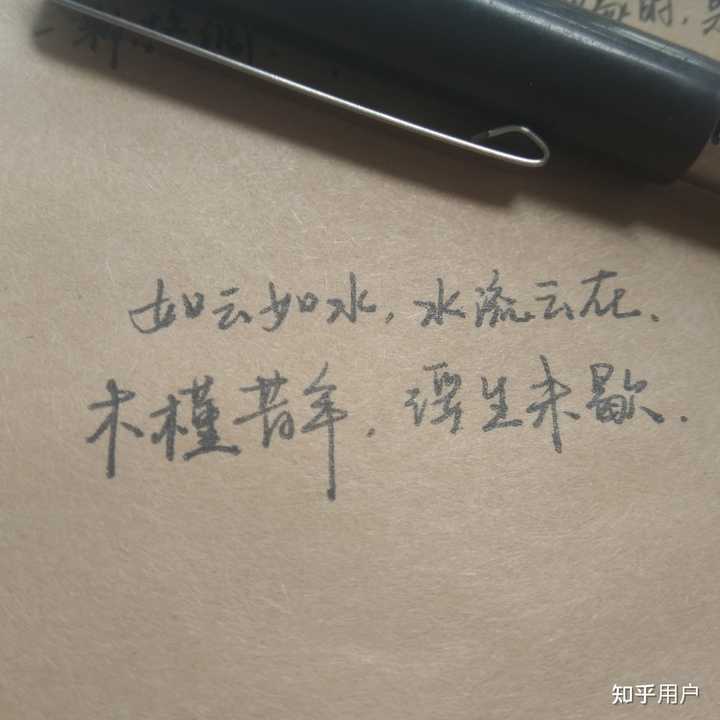 如云如水，水流云在.
木槿昔年，浮生未歇.
知乎用户